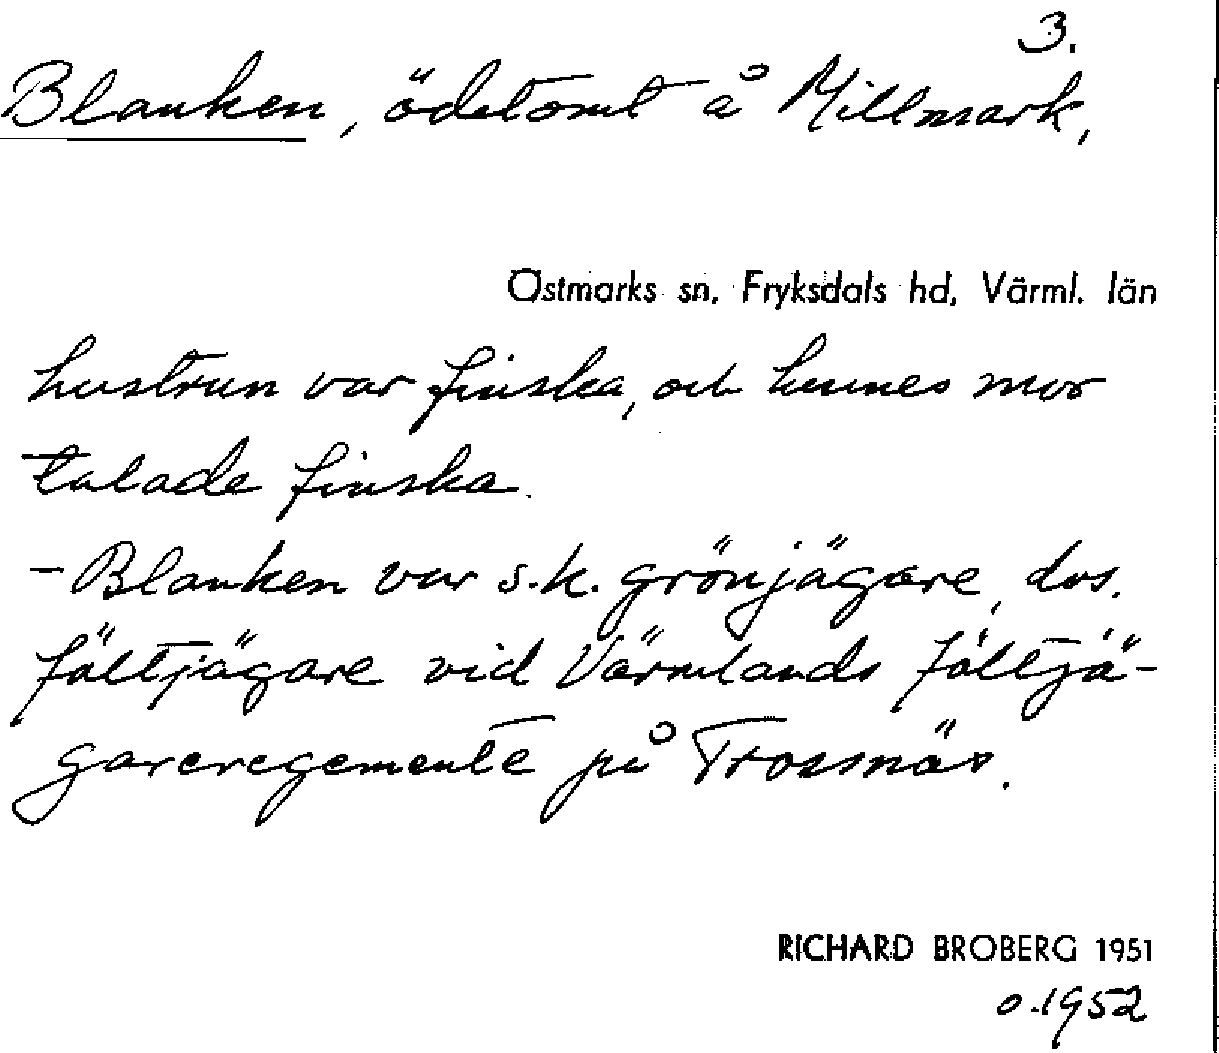 3.
Blanken, ödetomt å Millmark,
Östmarks sn. Fryksdals hd, Värml. län
hustrun var finska, och hennes mor
talade finska.
- Blanken var s.k. grönjägare, dvs.
fältjägare vid Värmlands fältjä-
gareregemente på Trossnäs.
RICHARD BROBERG 1951
o. 1952